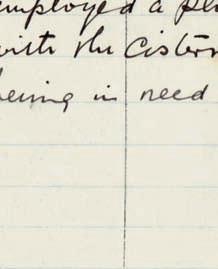 employed a
with the Cistern
being in need